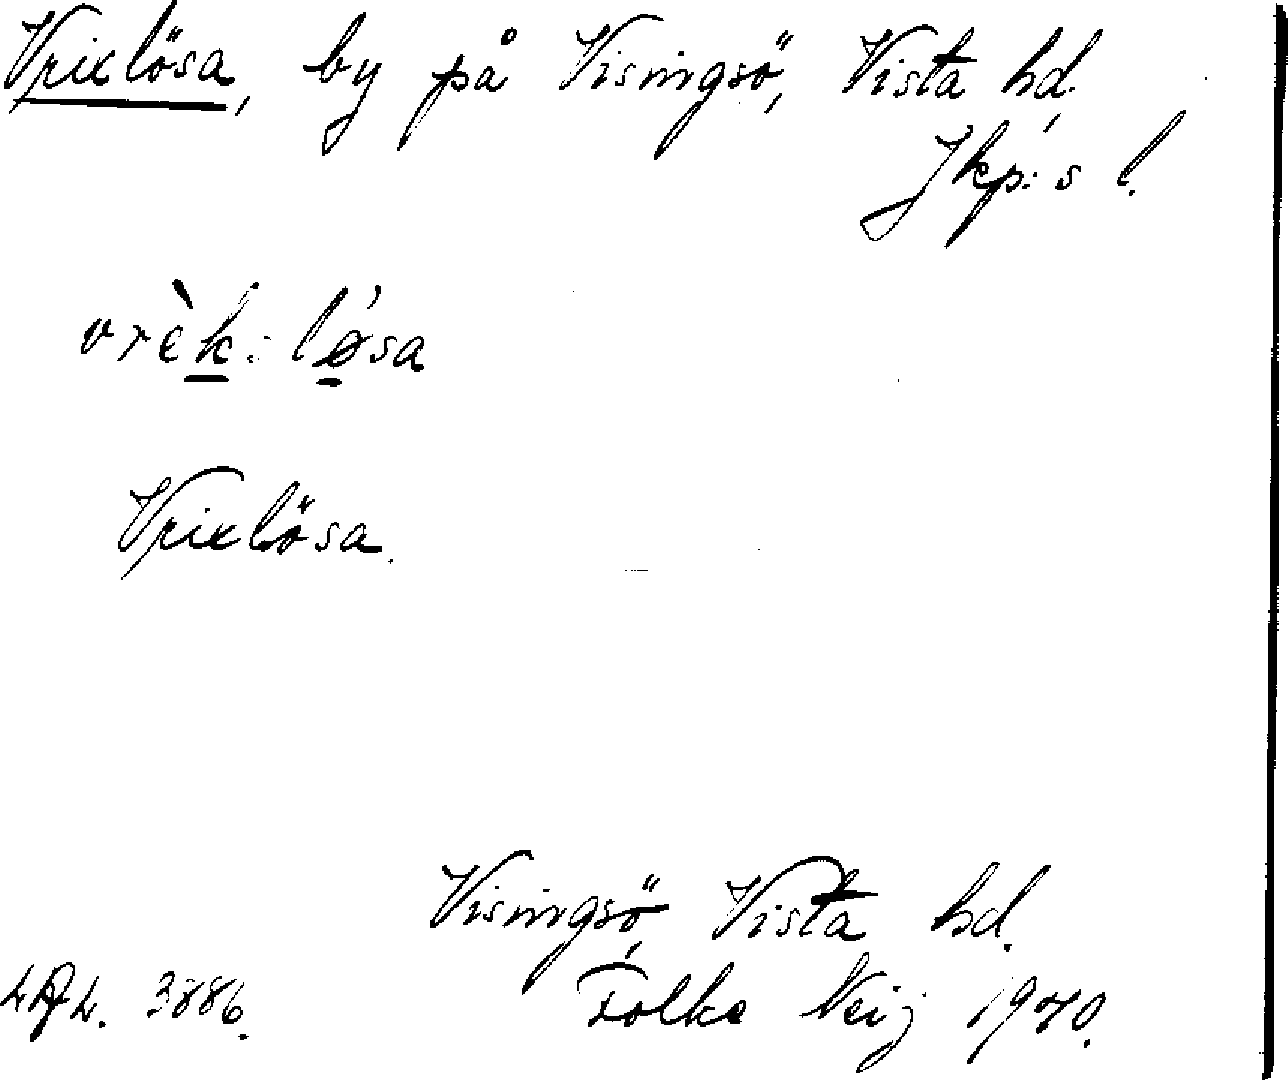 Vrixlösa, by på Visingsö, Vista hd,
Jkp:s l.
vrèk:lø´sa
Vrixlösa.
Visingsö, Vista hd.
3886. Folke Neij 1970.